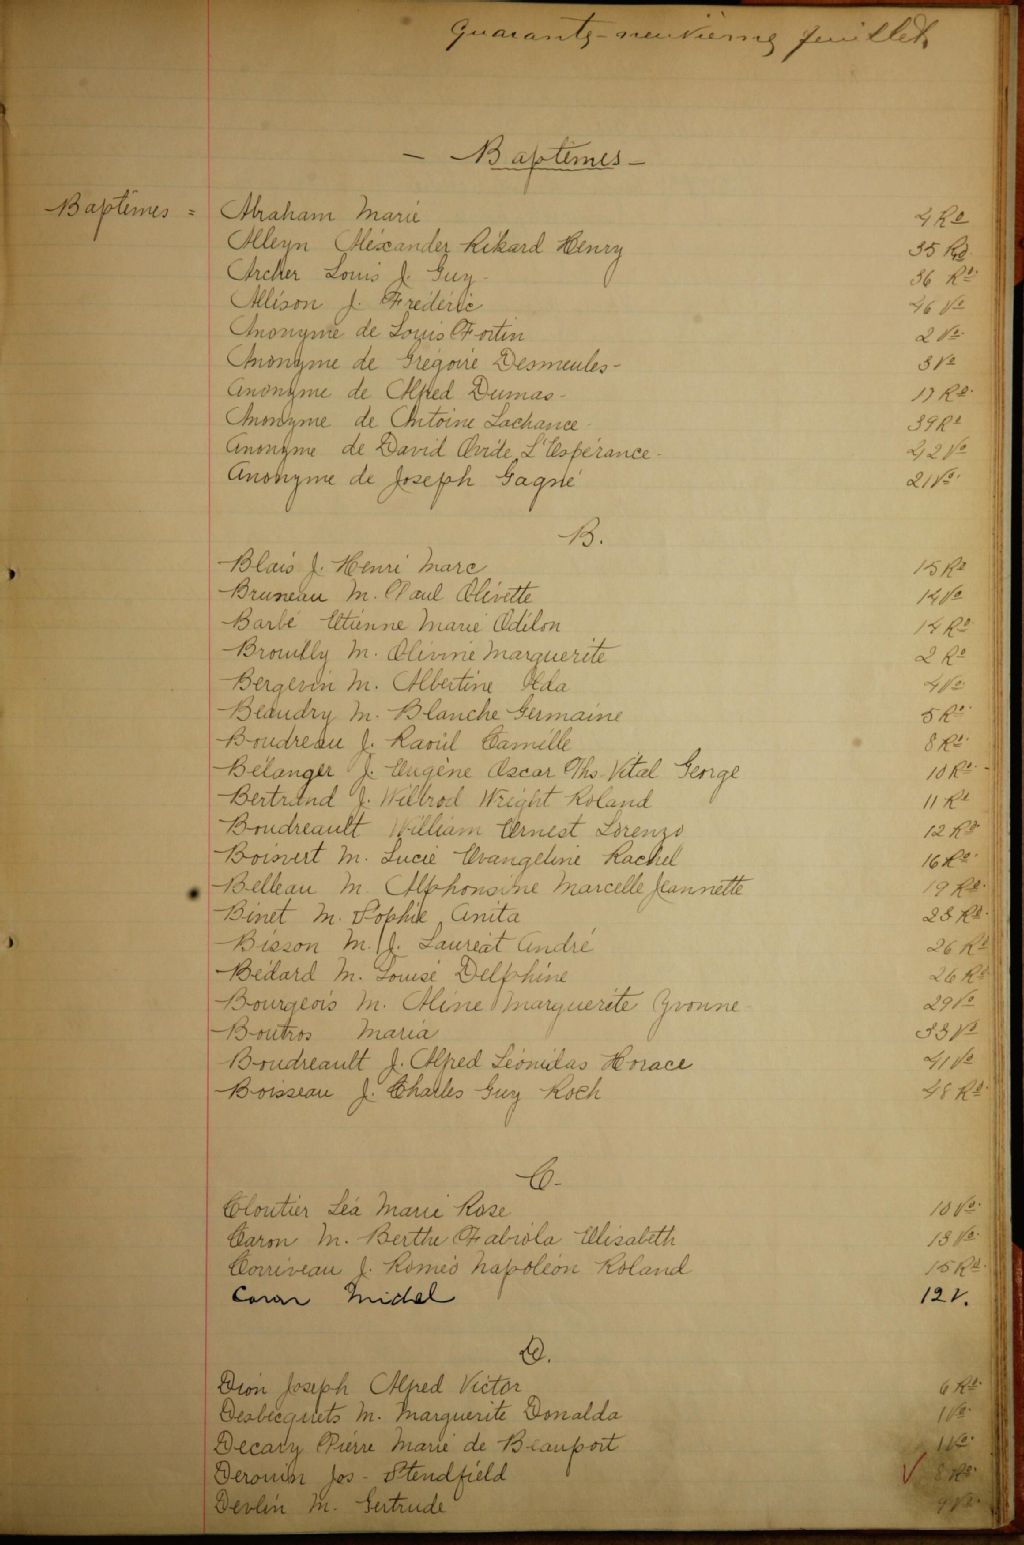 Quarante-neuvième feuillet
- Baptêmes -
Baptêmes =
Abraham Marie 4 Ro
Alleyn Alexander Rikard Henry 35 Ro
Archer Louis J. Guy - 36 Ro
Allison J. Frédéric 46 Vo
Anonyme de Louis Fortin 2 Vo
Anonyme de Grégoire Desmeules - 3 Vo
Anonyme de Alfred Dumas - 17 Ro
Anonyme de Antoine Lachance - 39 Ro
Anonyme de David Ovide L'Espérance - 42 Vo
Anonyme de Joseph Gagné 21 Vo
B.
Blais J. Henri Marc 15 Ro
Bruneau M. Paul Olivette 14 Vo
Barbé Etienne Marie Odilon 14 Ro
Brouilly M. Olivine Marguerite 2 Ro
Bergevin M. Albertine Ilda 4 Vo
Beaudry M. Blanche Germaine 5 Ro
Boudreau J. Raoül Camille 8 Ro
Bélanger J. Eugène Oscar Ths. Vital George 10 Ro
Bertrand J. Wilbrod Wright Roland 11 Ro
Boudreault William Ernest Lorenzo 12 Ro
Boisvert M. Lucie Evangeline Rachel 16 Ro
Belleau M. Alphonsine Marcelle Jeannette 19 Ro
Binet M. Sophie Anita 23 Ro
Bisson M. J. Lauréat André 26 Ro
Bédard M. Louise Delphine 26 Ro
Bourgeois M. Aline Marguerite Yvonne - 29 Vo
Boutros Maria 33 Vo
Boudreault J. Alfred Léonidas Horace 41 Vo
Boisseau J. Charles Guy Roch 48 Ro
C.
Cloutier Léa Marie Rose 10 Vo
Caron M. Berthe Fabiola Elisabeth 13 Vo
Corriveau J. Roméo Napoléon Roland 15 Ro
Caron Michel 12 V.
D.
Dion Joseph Alfred Victor 6 Ro
Desbecquets M. Marguerite Donalda 1 Vo
Decary Pierre Marie de Beauport 1 Vo
Derouin Jos - Stendfield ✓ 8 Ro
Devlin M. Gertrude 9 Vo